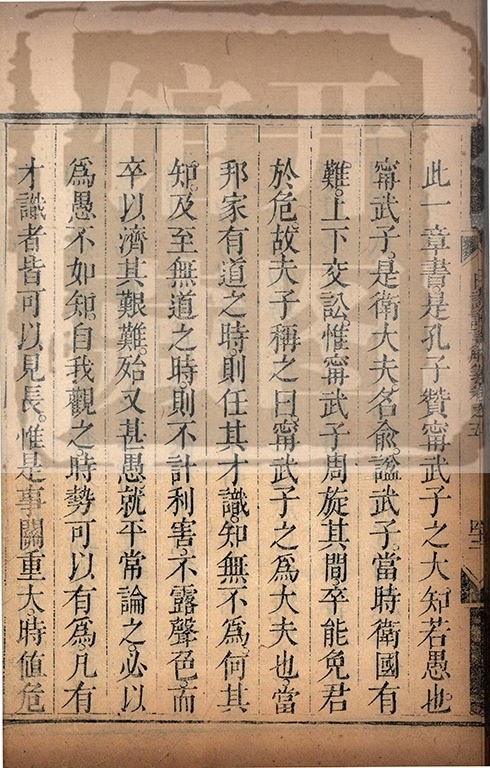 此一章書是孔子贊甯武子之大知若愚也
甯武子是衛大夫名俞諡武子當時衛國有
難上下交訟惟甯武子周旋其間卒能免君
於危故夫子稱之曰甯武子之為大夫也當
邦家有道之時則任其才識知無不為何其
知及至無道之時則不計利害不露聲色而
卒以濟其艱難殆又甚愚就平常論之必以
為愚不如知自我觀之時勢可以有為凡有
才識者皆可以見長惟是事關重大時值危